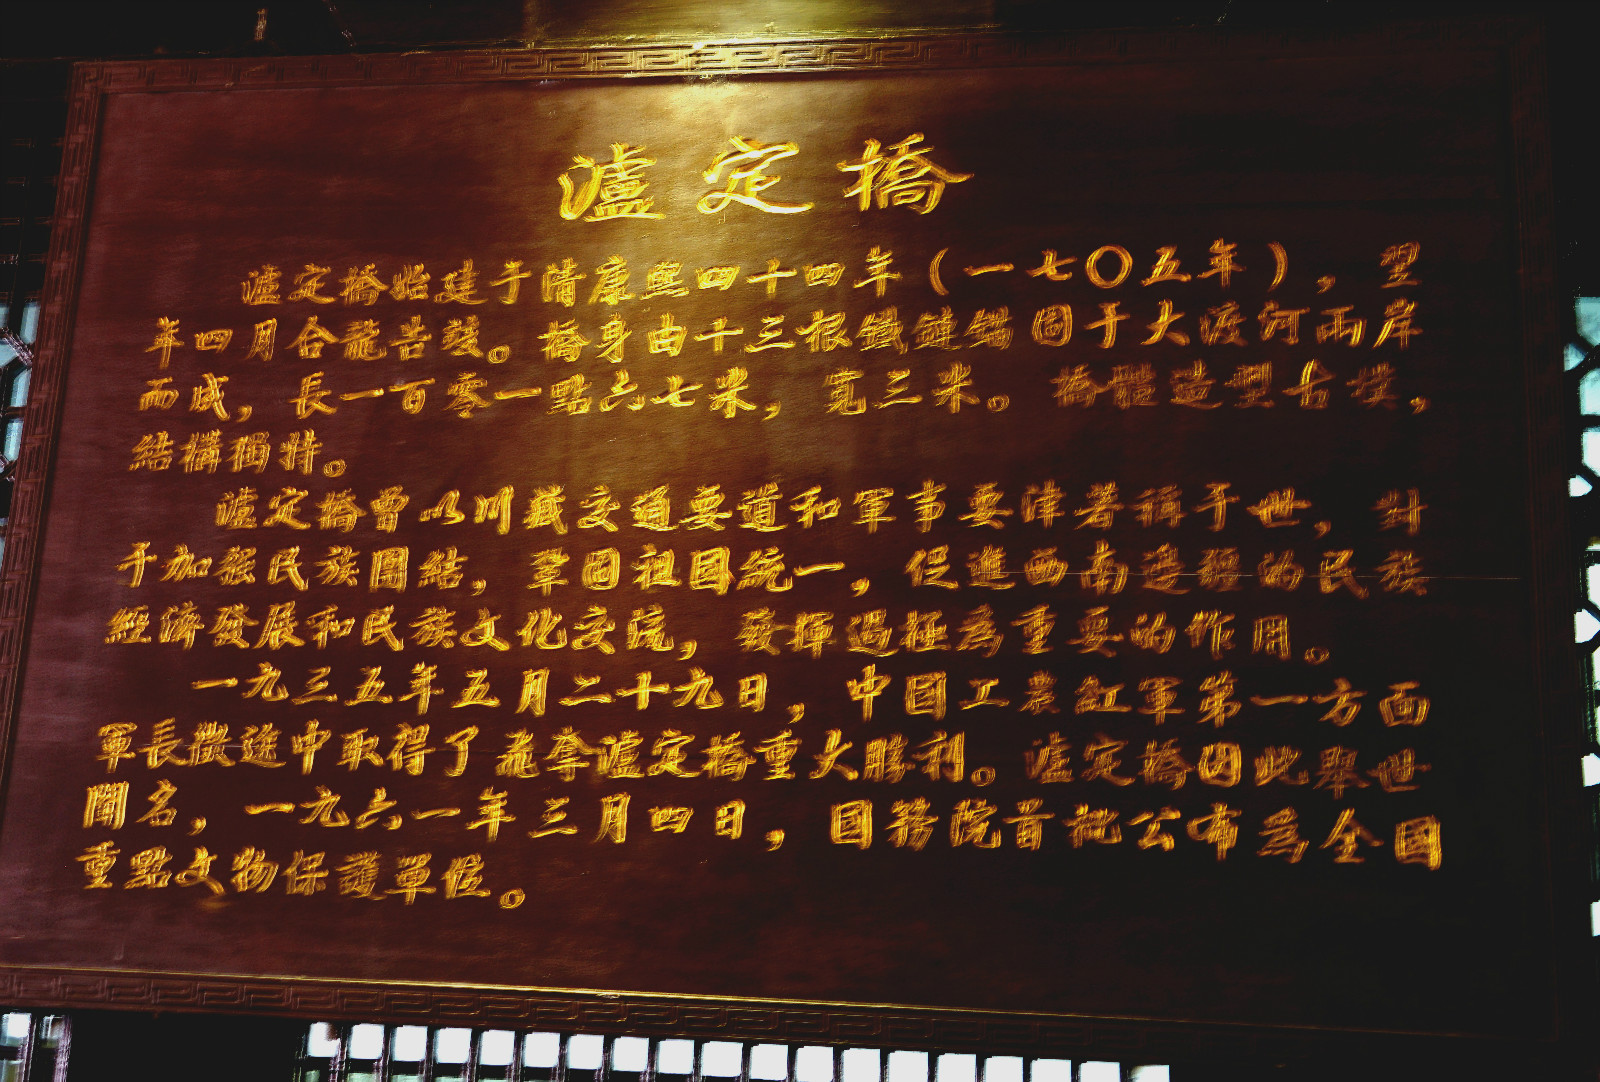 瀘定橋
瀘定橋始建于清康熙四十四年（一七〇五年），翌
年四月合龍告竣。橋身由十三根鐵鏈錨固于大渡河兩岸
而成，長一百零一點六七米，寬三米。橋體造型古樸，
結構獨特。
瀘定橋曾以川藏交通要道和軍事要津著稱于世，對
于加强民族團結，鞏固祖國統一，促進西南邊疆的民族
經濟發展和民族文化交流，發揮過極為重要的作用。
一九三五年五月二十九日，中國工農紅軍第一方面
軍長徵途中取得了飛拿瀘定橋重大勝利。瀘定橋因此舉世
聞名，一九六一年三月四日，國務院首批公布為全國
重點文物保護單位。